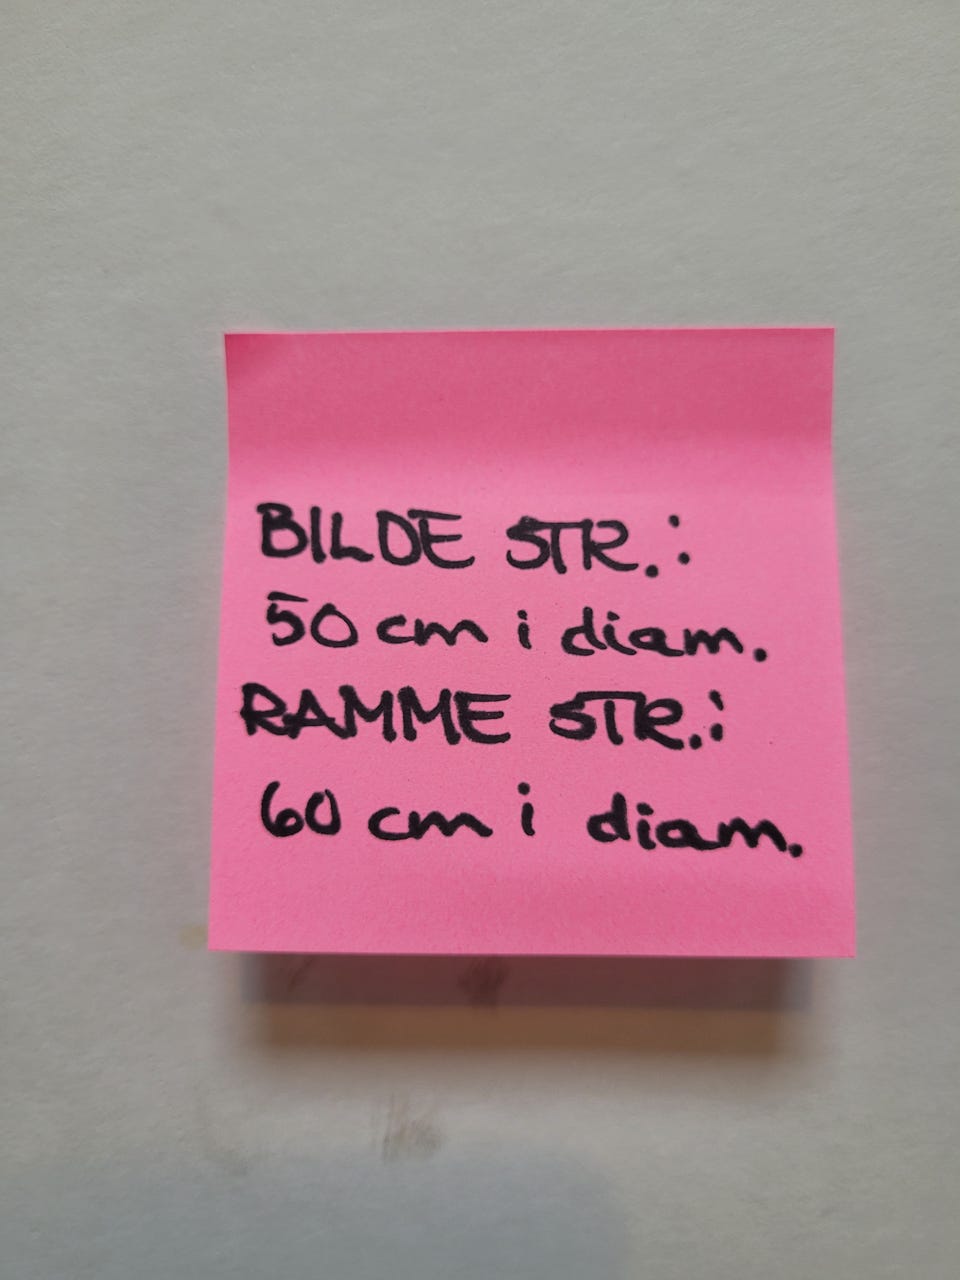 BILDE STR.:
50 cm i diam.
RAMME STR.:
60 cm i diam.